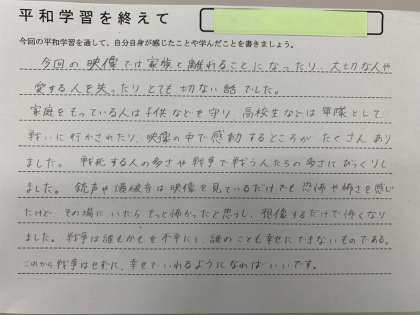 平和学習を終えて
今回の平和学習を通して、自分自身が感じたことや学んだことを書きましょう。
今回の映像では家族と離れることになったり、大切な人や
愛する人を失ったりとても切ない話でした。
家庭をもっている人は子供などを守り、高校生などは軍隊として
戦いに行かされたり、映像の中で感動するところがたくさんあり
ました。戦死する人の多さや戦争で戦う人たちの多さにびっくりし
ました。銃声や爆破音は映像を見ているだけでも恐怖や怖さを感じ
たけど、その場にいたらもっと怖かったと思うし、想像するだけで怖くなり
ました。戦争は誰もかもを不幸にし、誰のことも幸せにできないものである。
これから戦争はせずに、幸せでいれるようになればいいです。